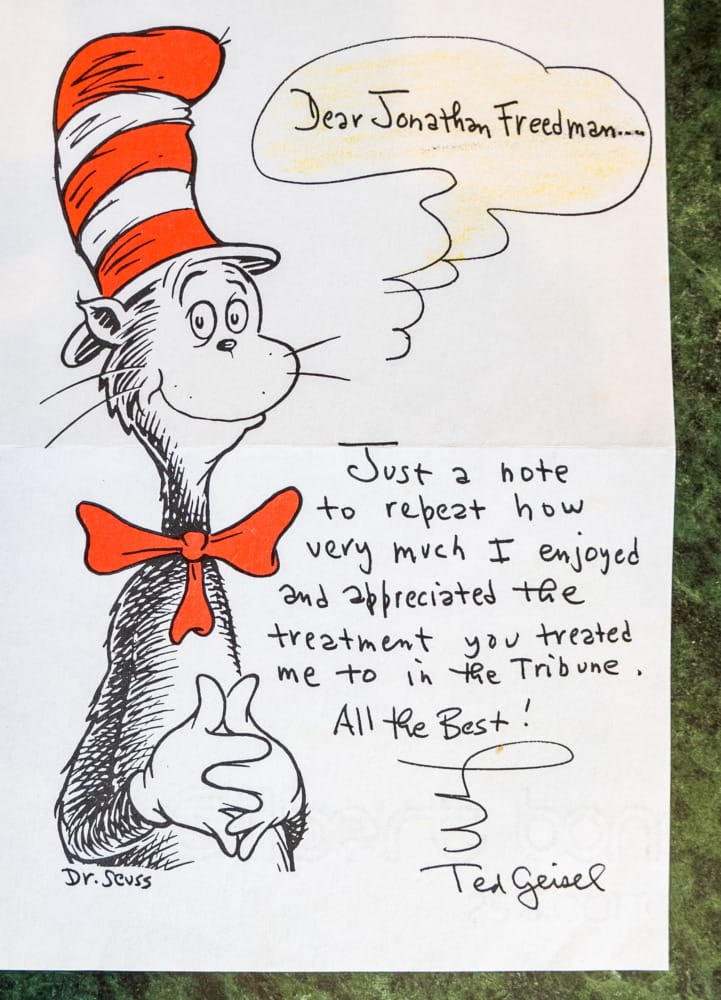 Dear Jonathan Freedman....
Just a note
to repeat how
very much I enjoyed
and appreciated the
treatment you treated
me to in the Tribune.
All the Best!
Ted Geisel
Dr. Seuss